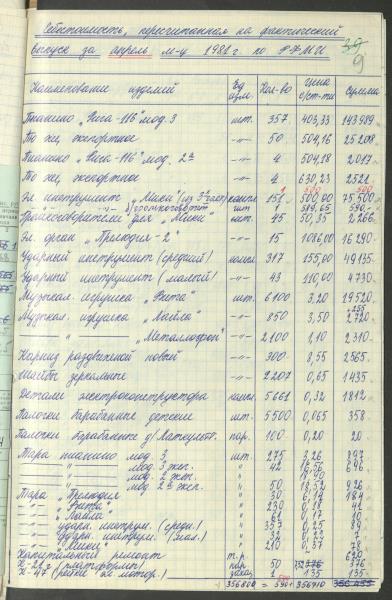 Себестоимость, пересчитанная на фактический
выпуск за апрель м-ц 1981 г по РЭМИ 39
9
Наименование изделий Ед. изм. Кол-во Цена с/ст-ти Сумма
Пианино „Рига-116" мод. 3 шт. 357 403,33 143989
То же, экспортное —"— 50 504,16 25208
Пианино „Рига-116" мод. 2а —"— 4 504,18 2017
То же, экспортное —"— 4 630,23 2521
1 500 500
Эл. инструмент „Мики" компл. 151 500,00 75500
шт 1 596-
Громкоговорители для „Мики" шт 45 50,35 2266
Эл. орган „Прелюдия-2" —"— 15 1086,00 16290
Ударный инструмент (средний) компл. 317 155,00 49135
Ударный инструмент (малый) —"— 43 110,00 4730
Музыкал. игрушка шт. 6100 3,20 19520
Музыкал. игрушка „Лайла" —"— 850 3,50 2720
—"— „Металлофон" —"— 2100 1,10 2310
Карниз раздвижной новый —"— 300 8,55 2565
Шайбы зеркальные —"— 2207 0,65 1435
Детали электроконструктора компл. 5661 0,32 1812
Палочки барабанные детские шт. 5500 0,065 358
Палочки барабанные д/ пар. 100 0,20 20
Тара пианино мод. 3 шт. 275 3,26 897
—"— мод. 3 экп. " 42 16,56 696
—"— мод. 2 экп.
—"— мод. 2а экп. 50 18,52 926
Тара „Прелюдия " 30 6,14 184
" 230 0,18 41
" „Лайла" " 210 0,10 21
" ударн. инструм. (средн.) " 357 0,25 89
" ударн. инструм. (мал.) " 32 0,22 7
" „Мики" " 210 0,37 78
Капитальный ремонт т.р. 620
пар 50 376
заказ 1 135 135
356800 = 356910 356455